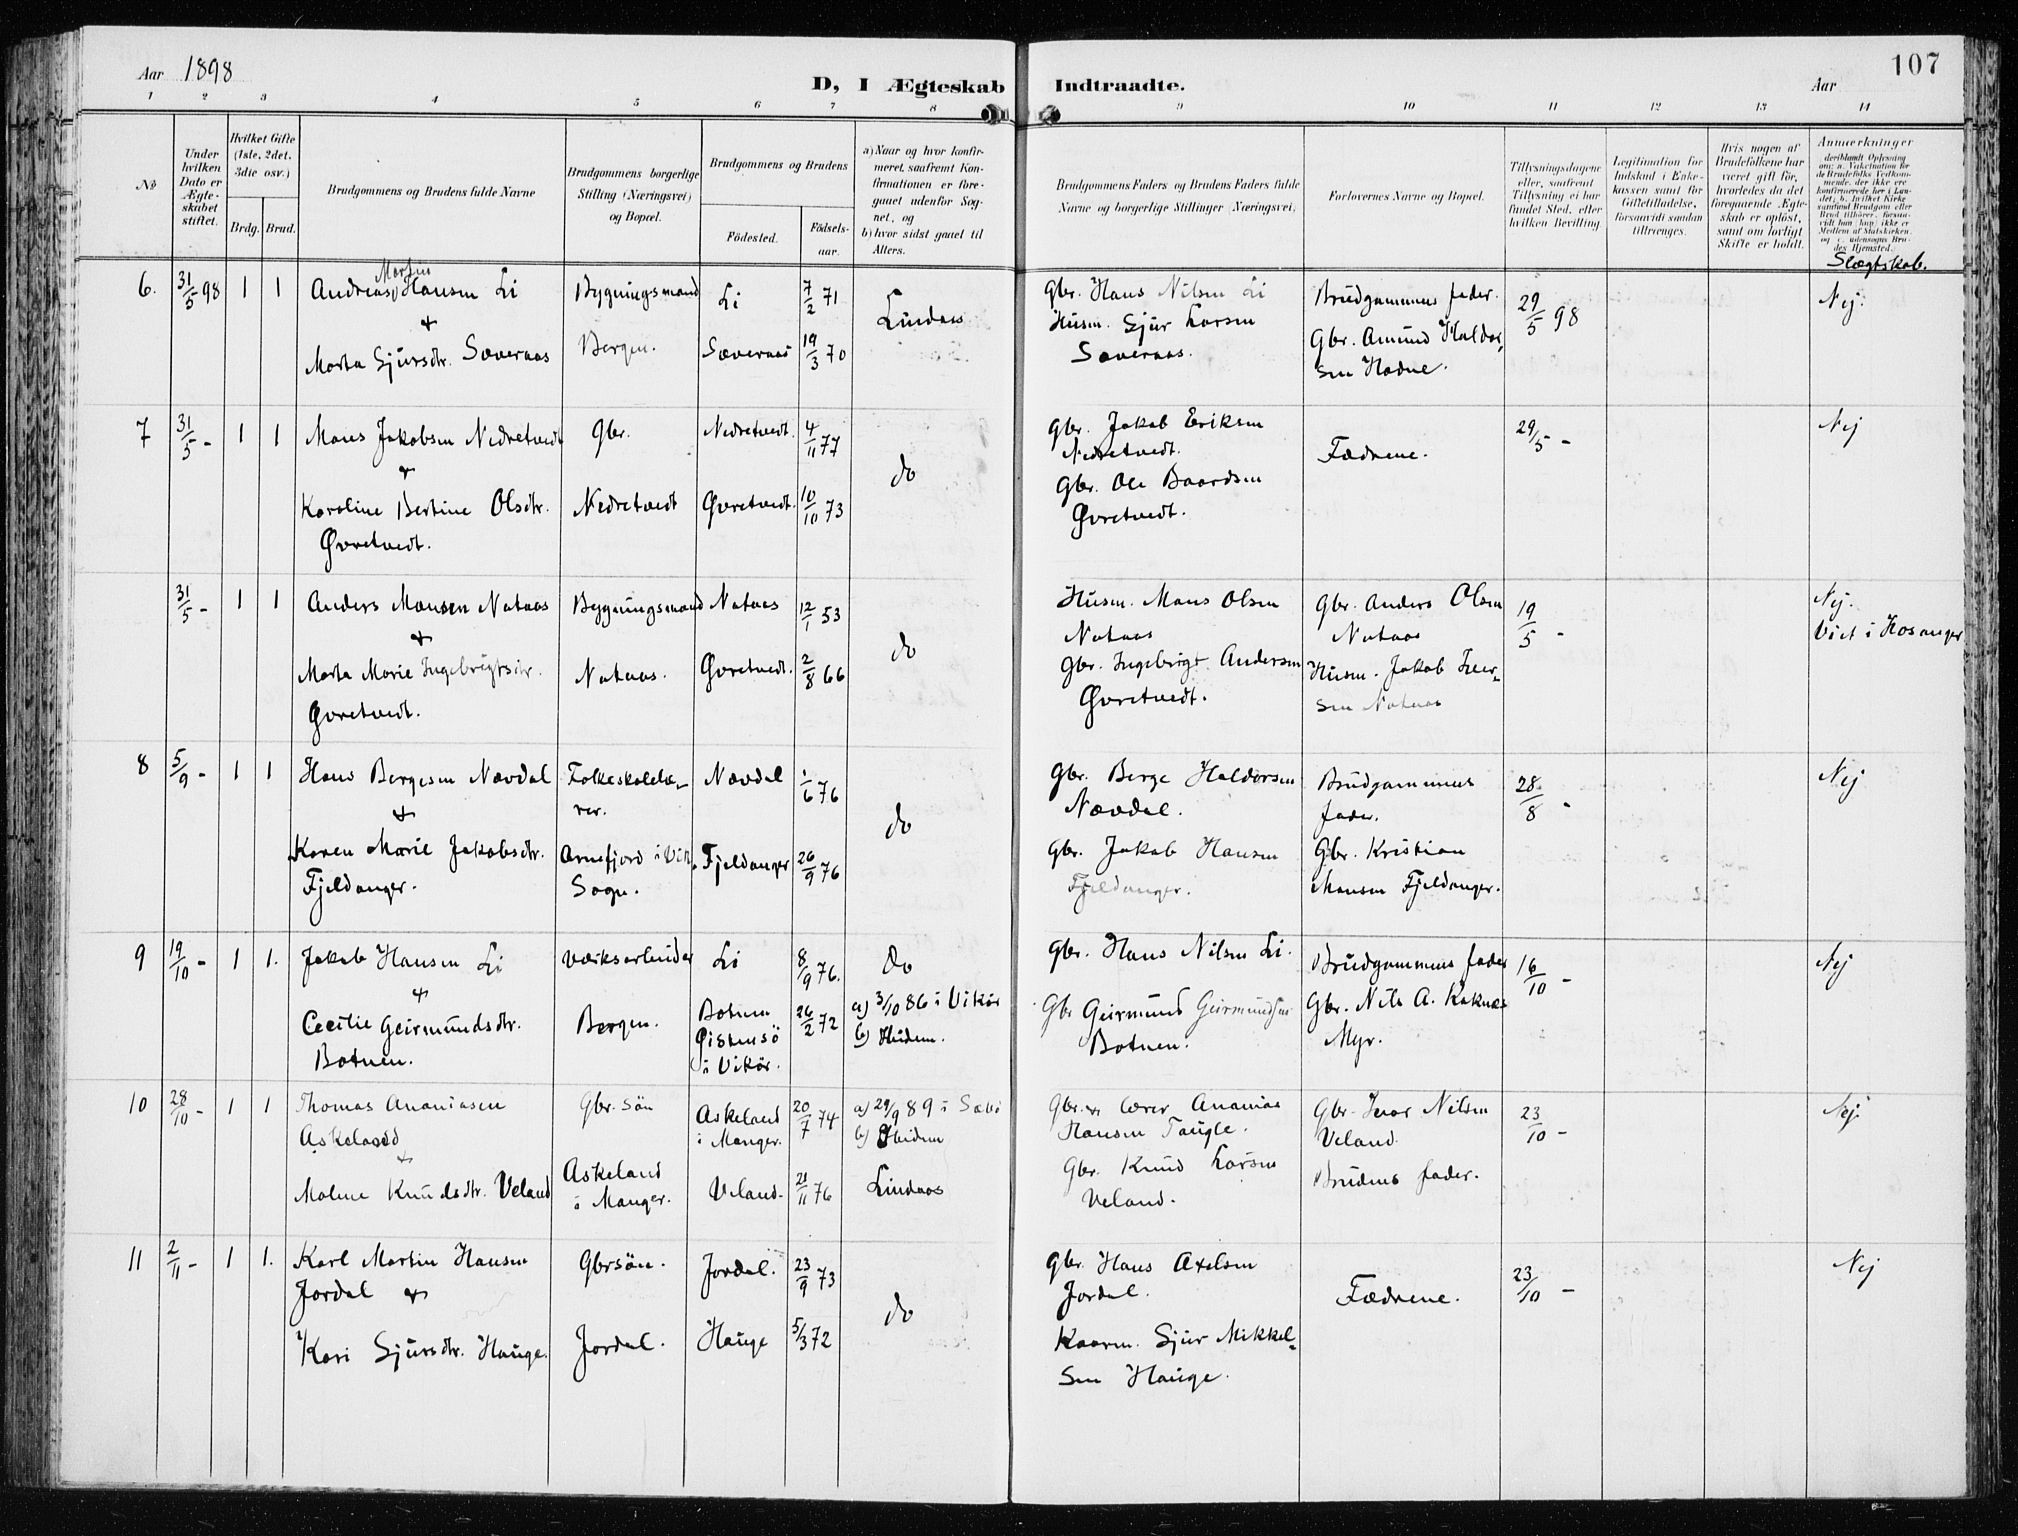 Aar 1898
D, I Ægteskab Indtraadte.
Aar
107
1 2 3 4 5 6 7 8 9 10 11 12 13 14
No
Under hvilken Dato er Ægteskabet stiftet.
Hvilket Gifte (1ste, 2det, 3die osv.)
Brdg. Brud.
Brudgommens og Brudens fulde Navne
Brudgommens borgerlige Stilling (Næringsvei) og Bopæl.
Brudgommens og Brudens
Fødested.
Fødselsaar.
a) Naar og hvor konfirmeret, saafremt Konfirmationen er foregaaet udenfor Sognet, og
b) hvor sidst gaaet til Alters.
Brudgommens Faders og Brudens Faders fulde Navne og borgerlige Stillinger (Næringsvei)
Forlovernes Navne og Bopæl.
Tillysningsdagene eller, saafremt Tillysning ei har fundet Sted, efter hvilken Bevilling.
Legitimation for Indskud i Enkekassen samt for Giftetilladelse, forsaavidt saadan tiltrænges.
Hvis nogen af Brudefolkene har været gift før, hvorledes da det foregaaende Ægteskab er opløst, samt om lovligt Skifte er holdt.
Anmerkninger
Slægtskab.
6. 31/5 98 1 1
Andreas Morten Hansen Li
&
Marta Sjursdtr. Sæveraas
Bygningsmand
Bergen.
Li 7/2 71
Sæveraas 19/3 70
Lindaas
Gbr. Hans Nilsen Li
Husm. Sjur Larsen
Sæveraas.
Brudgommens fader.
Gbr. Amund Haldor-
sen Hodne.
29/5 98
Nej.
7 31/5 - 1 1
Mons Jakobsen Nedretvedt
&
Karoline Bertine Olsdtr.
Øvretvedt.
Gbr.
Nedretvedt
Nedretvedt. 4/11 77
Øvretvedt. 10/10 73
do
Gbr. Jakob Eriksen
Nedretvedt.
Gbr. Ole Baardsen
Øvretvedt.
Fædrene.
29/5 -
Nej
31/5 - 1 1
Anders Monsen Nataas
&
Marta Marie Ingebrigtsdtr.
Øvretvedt.
Bygningsmand
Nataas.
Nataas 12/1 53
Øvretvedt. 2/8 66
do
Husm. Mons Olsen
Nataas
Gbr. Ingebrigt Andersen
Øvretvedt.
Gbr. Anders Olsen
Nataas
Husm. Jakob Iver-
sen Nataas
19/5 -
Nej.
Viet i Hosanger
8 5/9 - 1 1
Hans Bergesen Nævdal
&
Karen Marie Jakobsdtr.
Fjeldanger.
Folkeskolelæ-
rer.
Arnefjord i Vik
Sogn.
Nævdal 1/6 76
Fjeldanger 26/9 76
do
Gbr. Berge Haldorsen
Nævdal.
Gbr. Jakob Hansen
Fjeldanger.
Brudgommens
fader.
Gbr. Kristian
Monsen Fjeldanger.
28/8 -
Nej
9 19/10 - 1 1.
Jakob Hansen Li
&
Cecilie Geirmundsdtr.
Botnen.
Værksarbeider
Bergen.
Li 8/9 76.
Botnen
Østensö
i Vikör. 26/2 72
Do
a) 3/10 86 i Vikör
b) Ibidem.
Gbr. Hans Nilsen Li.
Gbr Geirmund Geirmundsen
Botnen.
Brudgommens fader
Gbr. Nils A. Koknæs
Myr.
16/10 -
Nej
10 28/10 - 1 1
Thomas Ananiasen
Askeland
&
Malene Knudsdtr. Veland
Gbr. sön
Askeland
i Manger.
Askeland
i Manger. 20/7 74
Veland. 21/11 76
a) 29/9 89 i Sæbö
b) Ibidem
Lindaas
Gbr. & lærer Ananias
Hansen Taugle.
Gbr. Knud Larsen
Veland.
Gbr. Ivar Nilsen
Veland.
Brudens fader.
23/10 -
Nej.
11 2/11 - 1 1.
Karl Martin Hansen
Jordal &
Kari Sjursdtr. Hauge.
Gbrsön.
Jordal.
Jordal. 23/9 73
Hauge 5/3 72
do
Gbr. Hans Axelsen
Jordal.
Kaarm. Sjur Mikkel-
sen Hauge.
Fædrene.
23/10 -
Nej